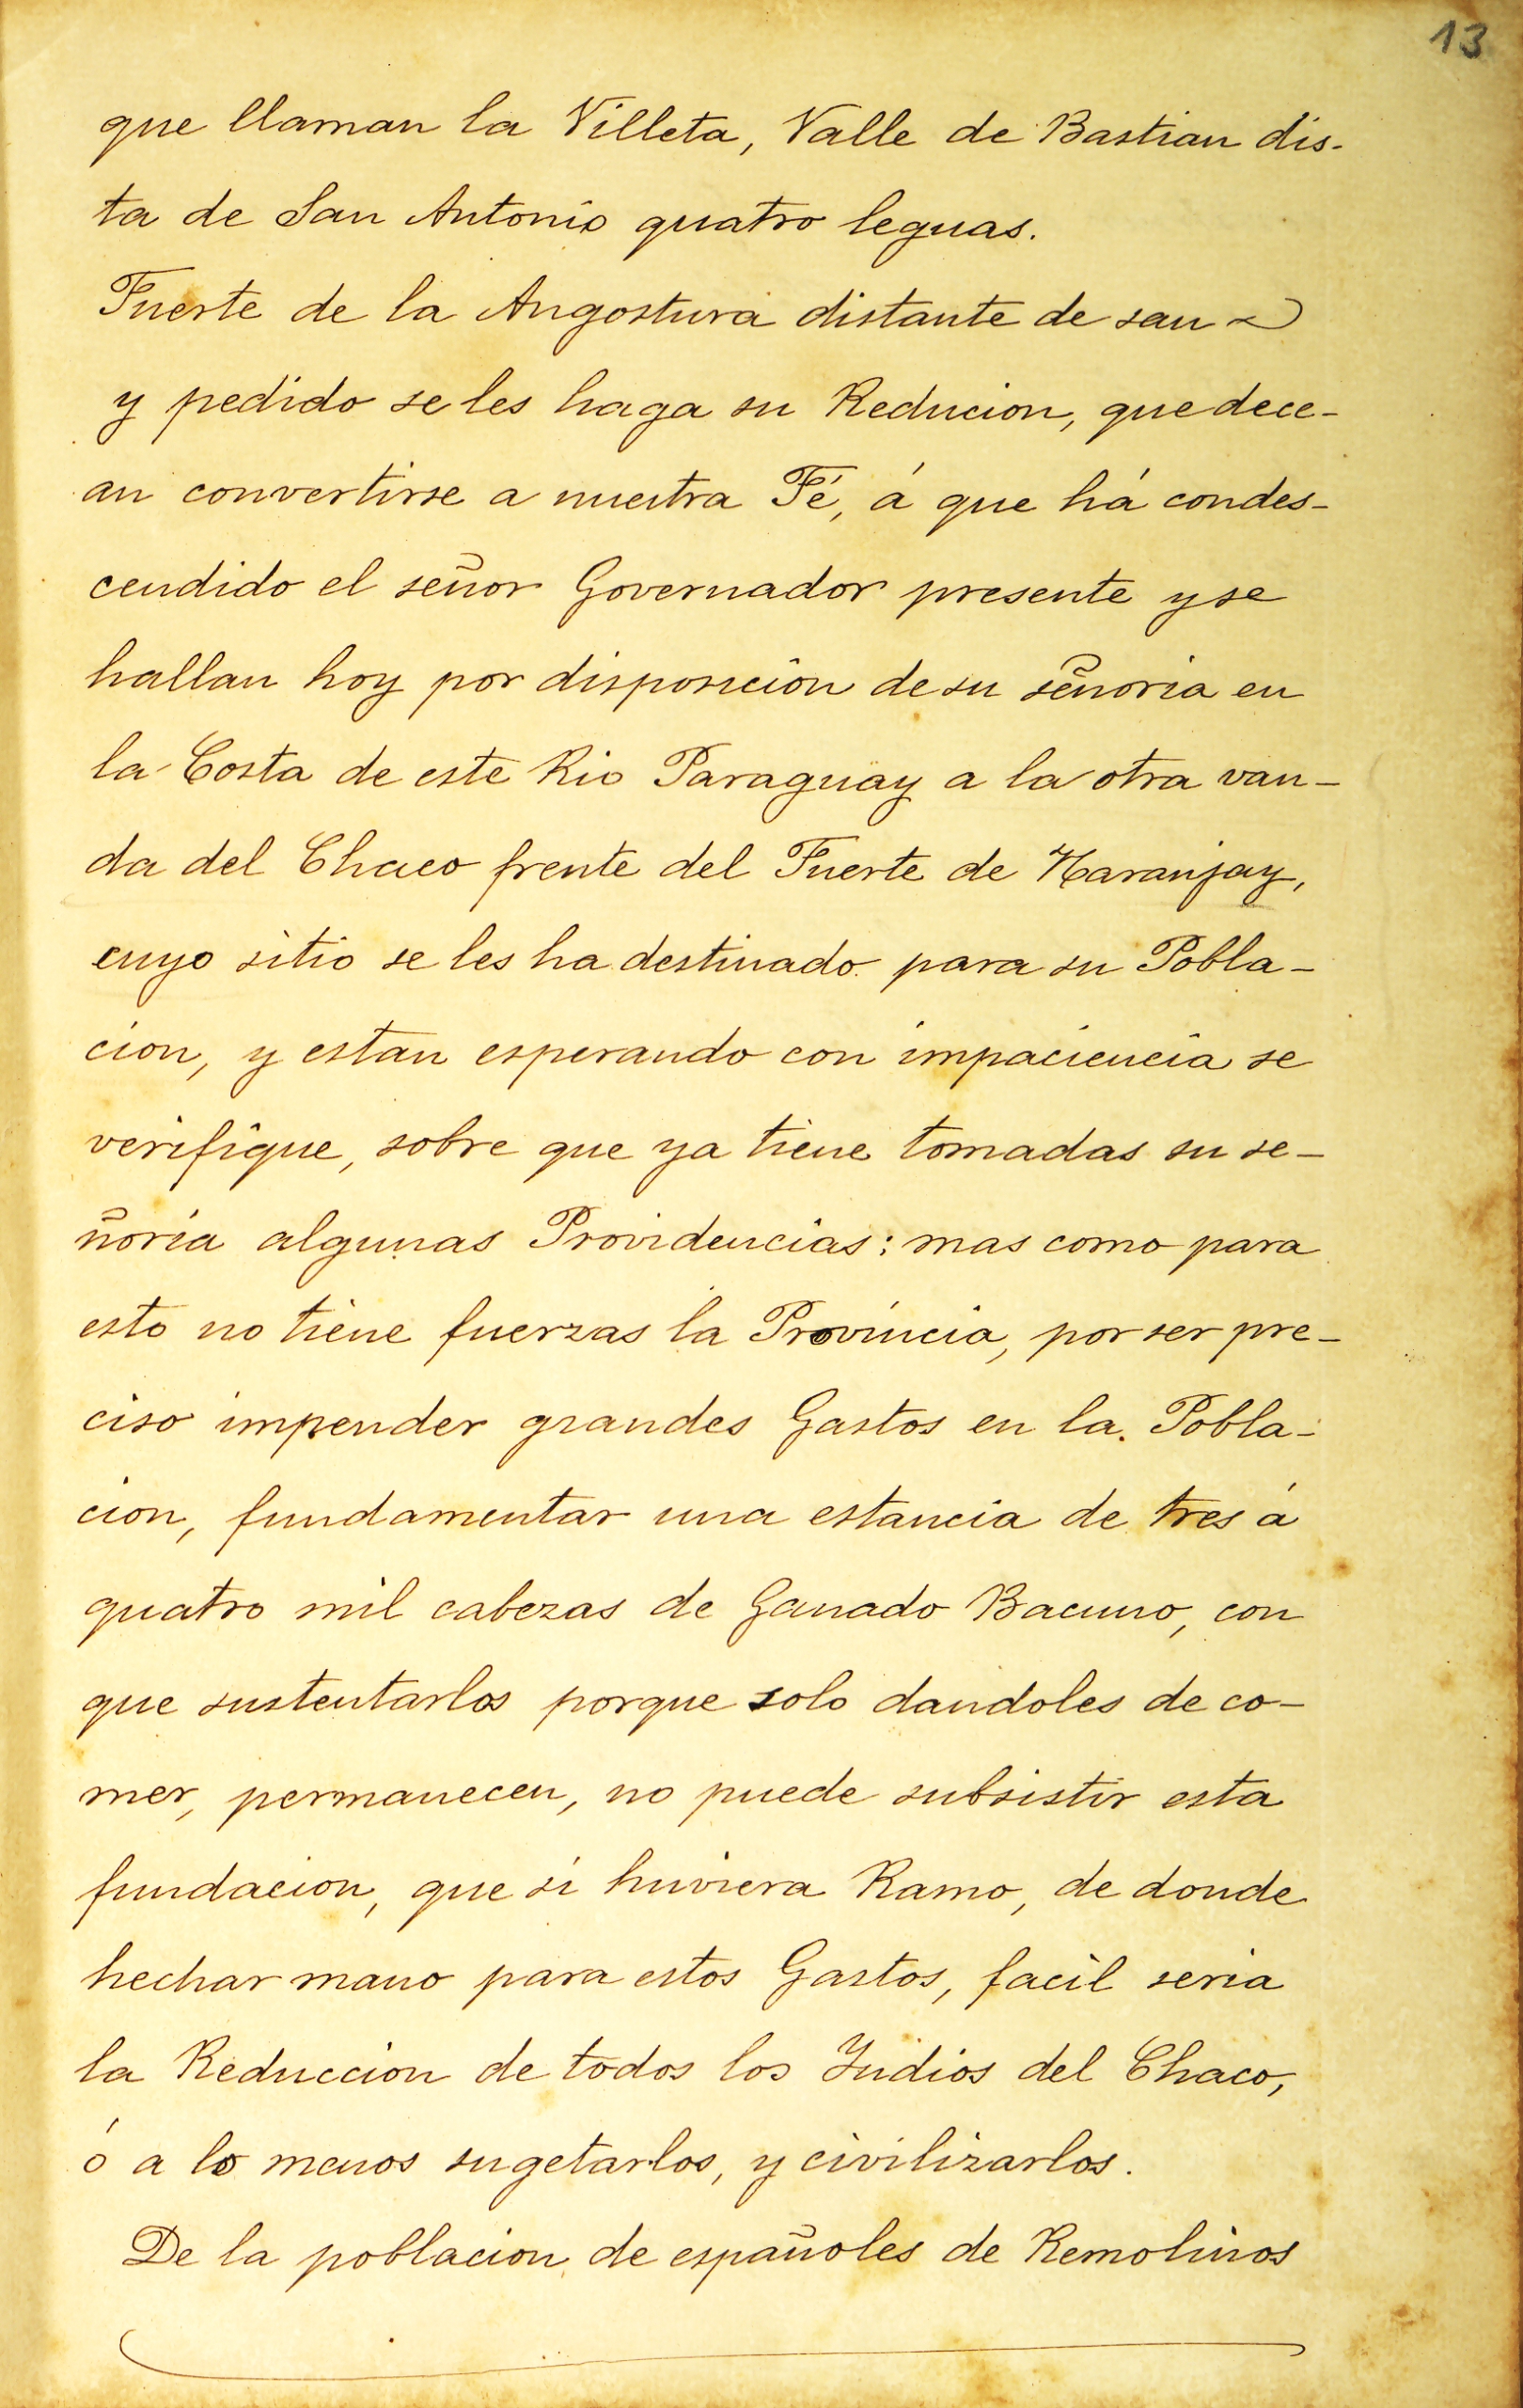 13
que llaman la Villeta, Valle de Bastian dis-
ta de San Antonio quatro leguas.
Fuerte de la Angostura distante de san
y pedido se les haga su Reducion, que dece-
an convertirse a nuestra Fé, á que há condes-
cendido el señor Governador presente y se
hallan hoy por disposicion de su señoria en
la Costa de este Rio Paraguay a la otra van-
da del Chaco frente del Fuerte de Naranjay,
cuyo sitio se les ha destinado para su Pobla-
cion, y estan esperando con impaciencia se
verifique, sobre que ya tiene tomadas su se-
ñoria algunas Providencias: mas como para
esto no tiene fuerzas la Provincia, por ser pre-
ciso impender grandes Gastos en la Pobla-
cion, fundamentar una estancia de tres á
quatro mil cabezas de Ganado Bacuno, con
que sustentarlos porque solo dandoles de co-
mer, permanecen, no puede subsistir esta
fundacion, que si huviera Ramo, de donde
hechar mano para estos Gastos, facil seria
la Reduccion de todos los Indios del Chaco,
ó a lo menos sugetarlos, y civilizarlos.
De la poblacion de españoles de Remolinos